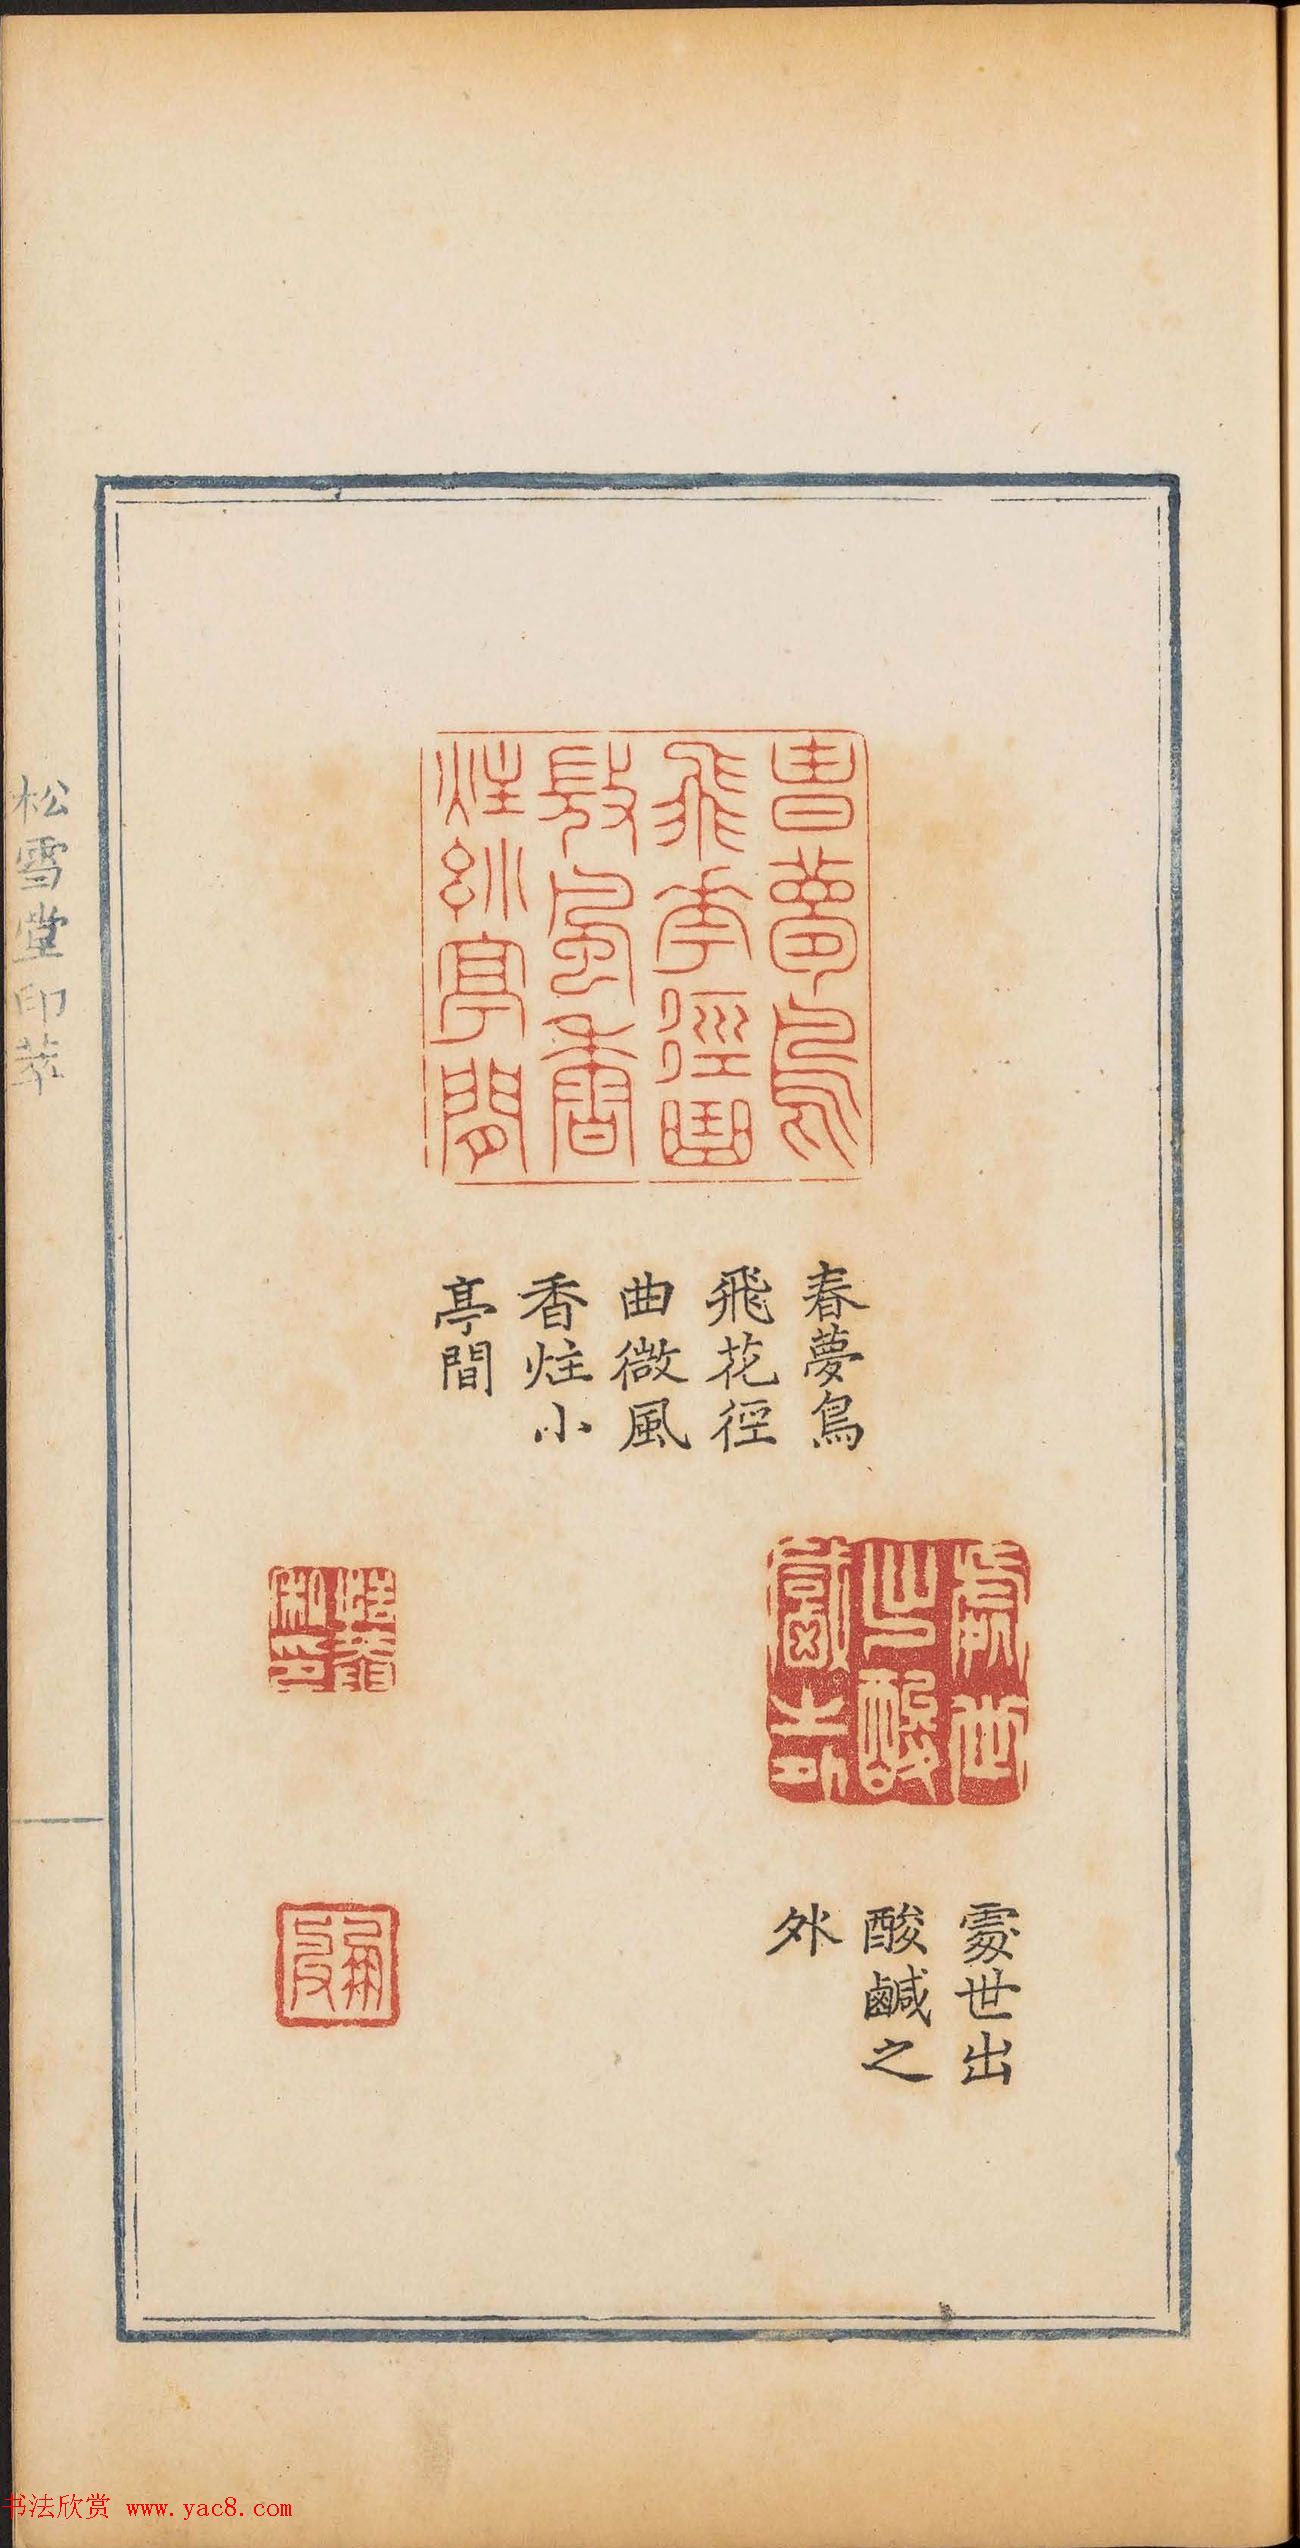 春夢鳥飛花徑曲敚風香炷小亭間
春夢鳥
飛花徑
曲微風
香炷小
亭間
處世出
酸鹹之
外
松雪堂印萃
书法欣赏 www.yac8.com